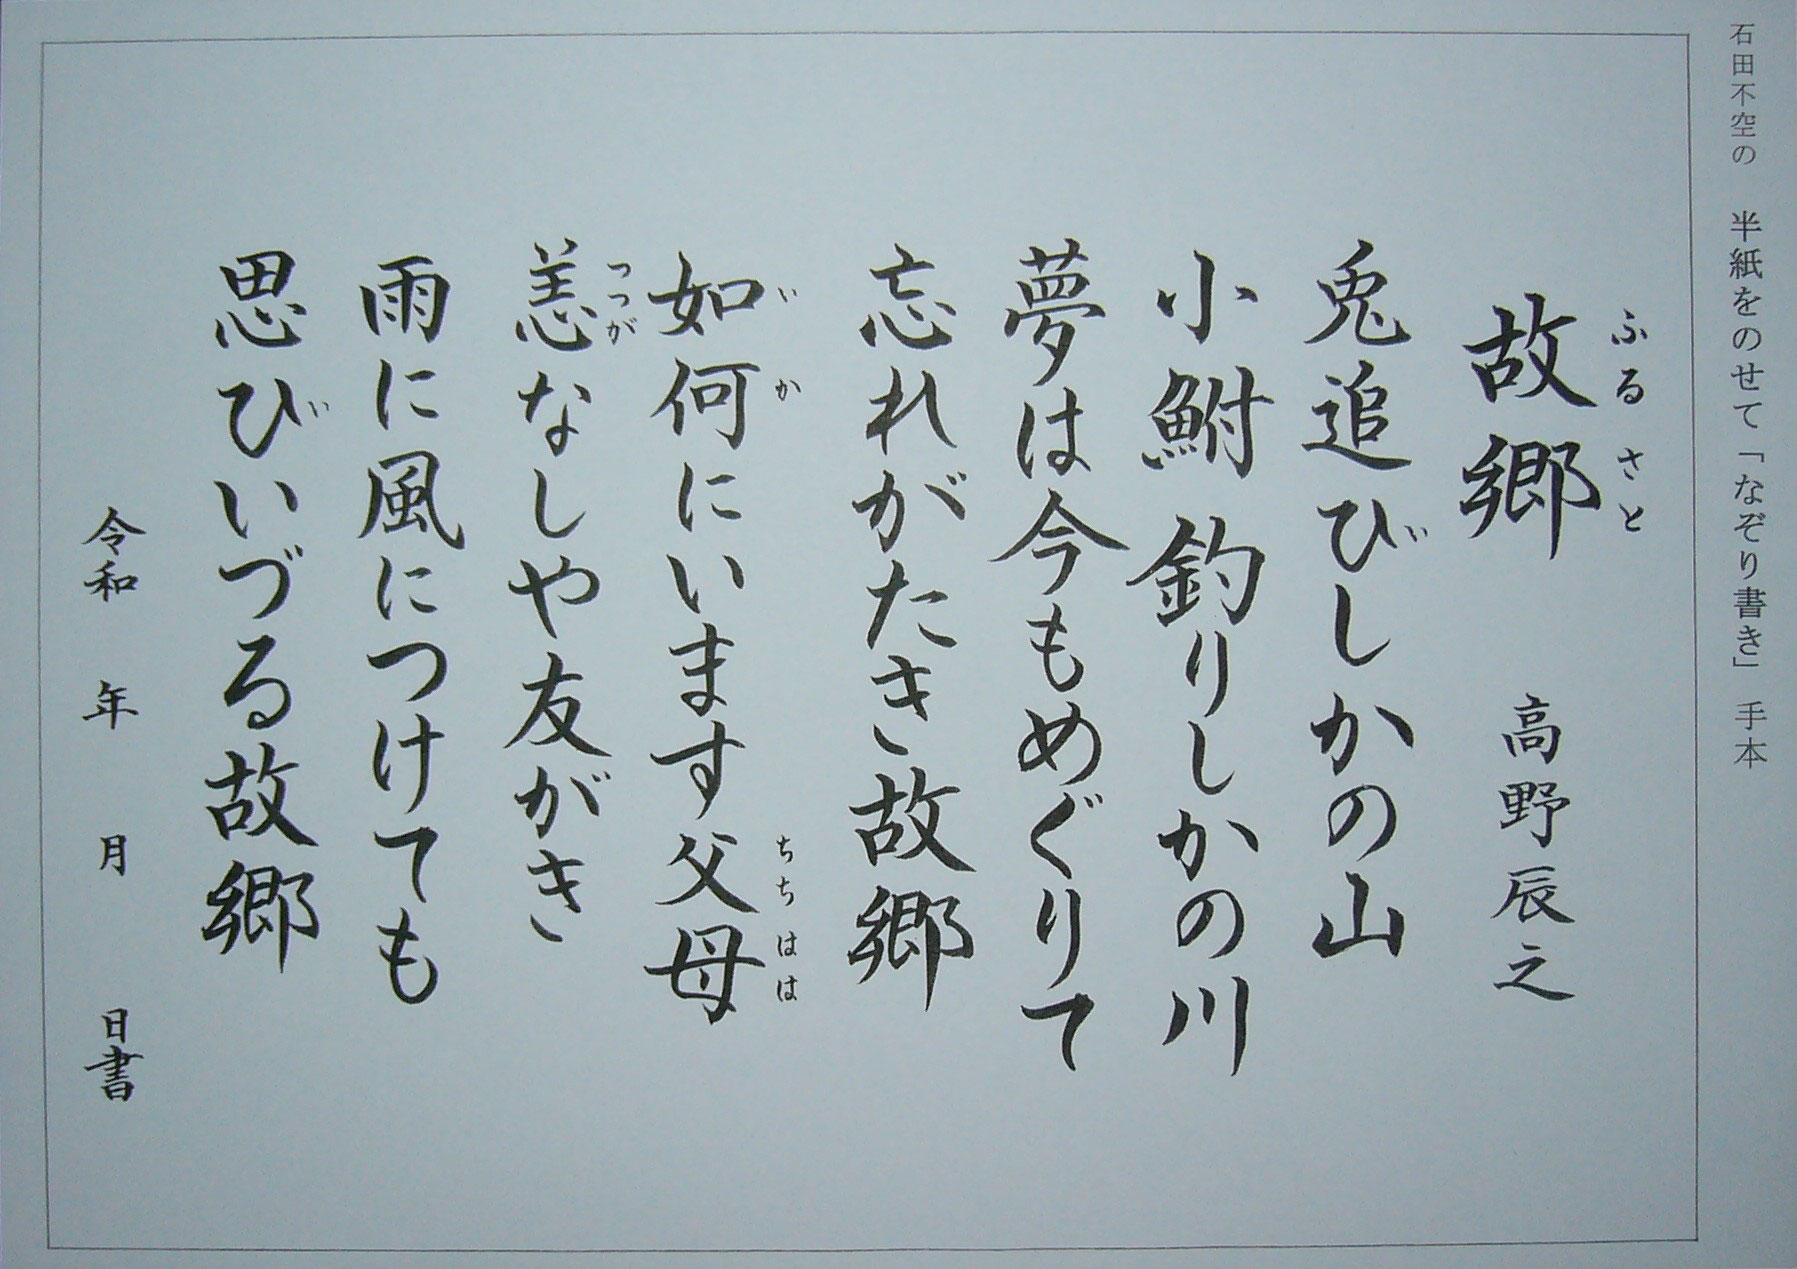 石田不空の 半紙をのせて「なぞり書き」 手本
ふるさと
故郷 高野辰之
兎追びしかの山
小鮒釣りしかの川
夢は今もめぐりて
忘れがたき故郷
いか ちちはは
如何にいます父母
つつが
恙なしや友がき
雨に風につけても
思びいづる故郷
令和 年 月 日書